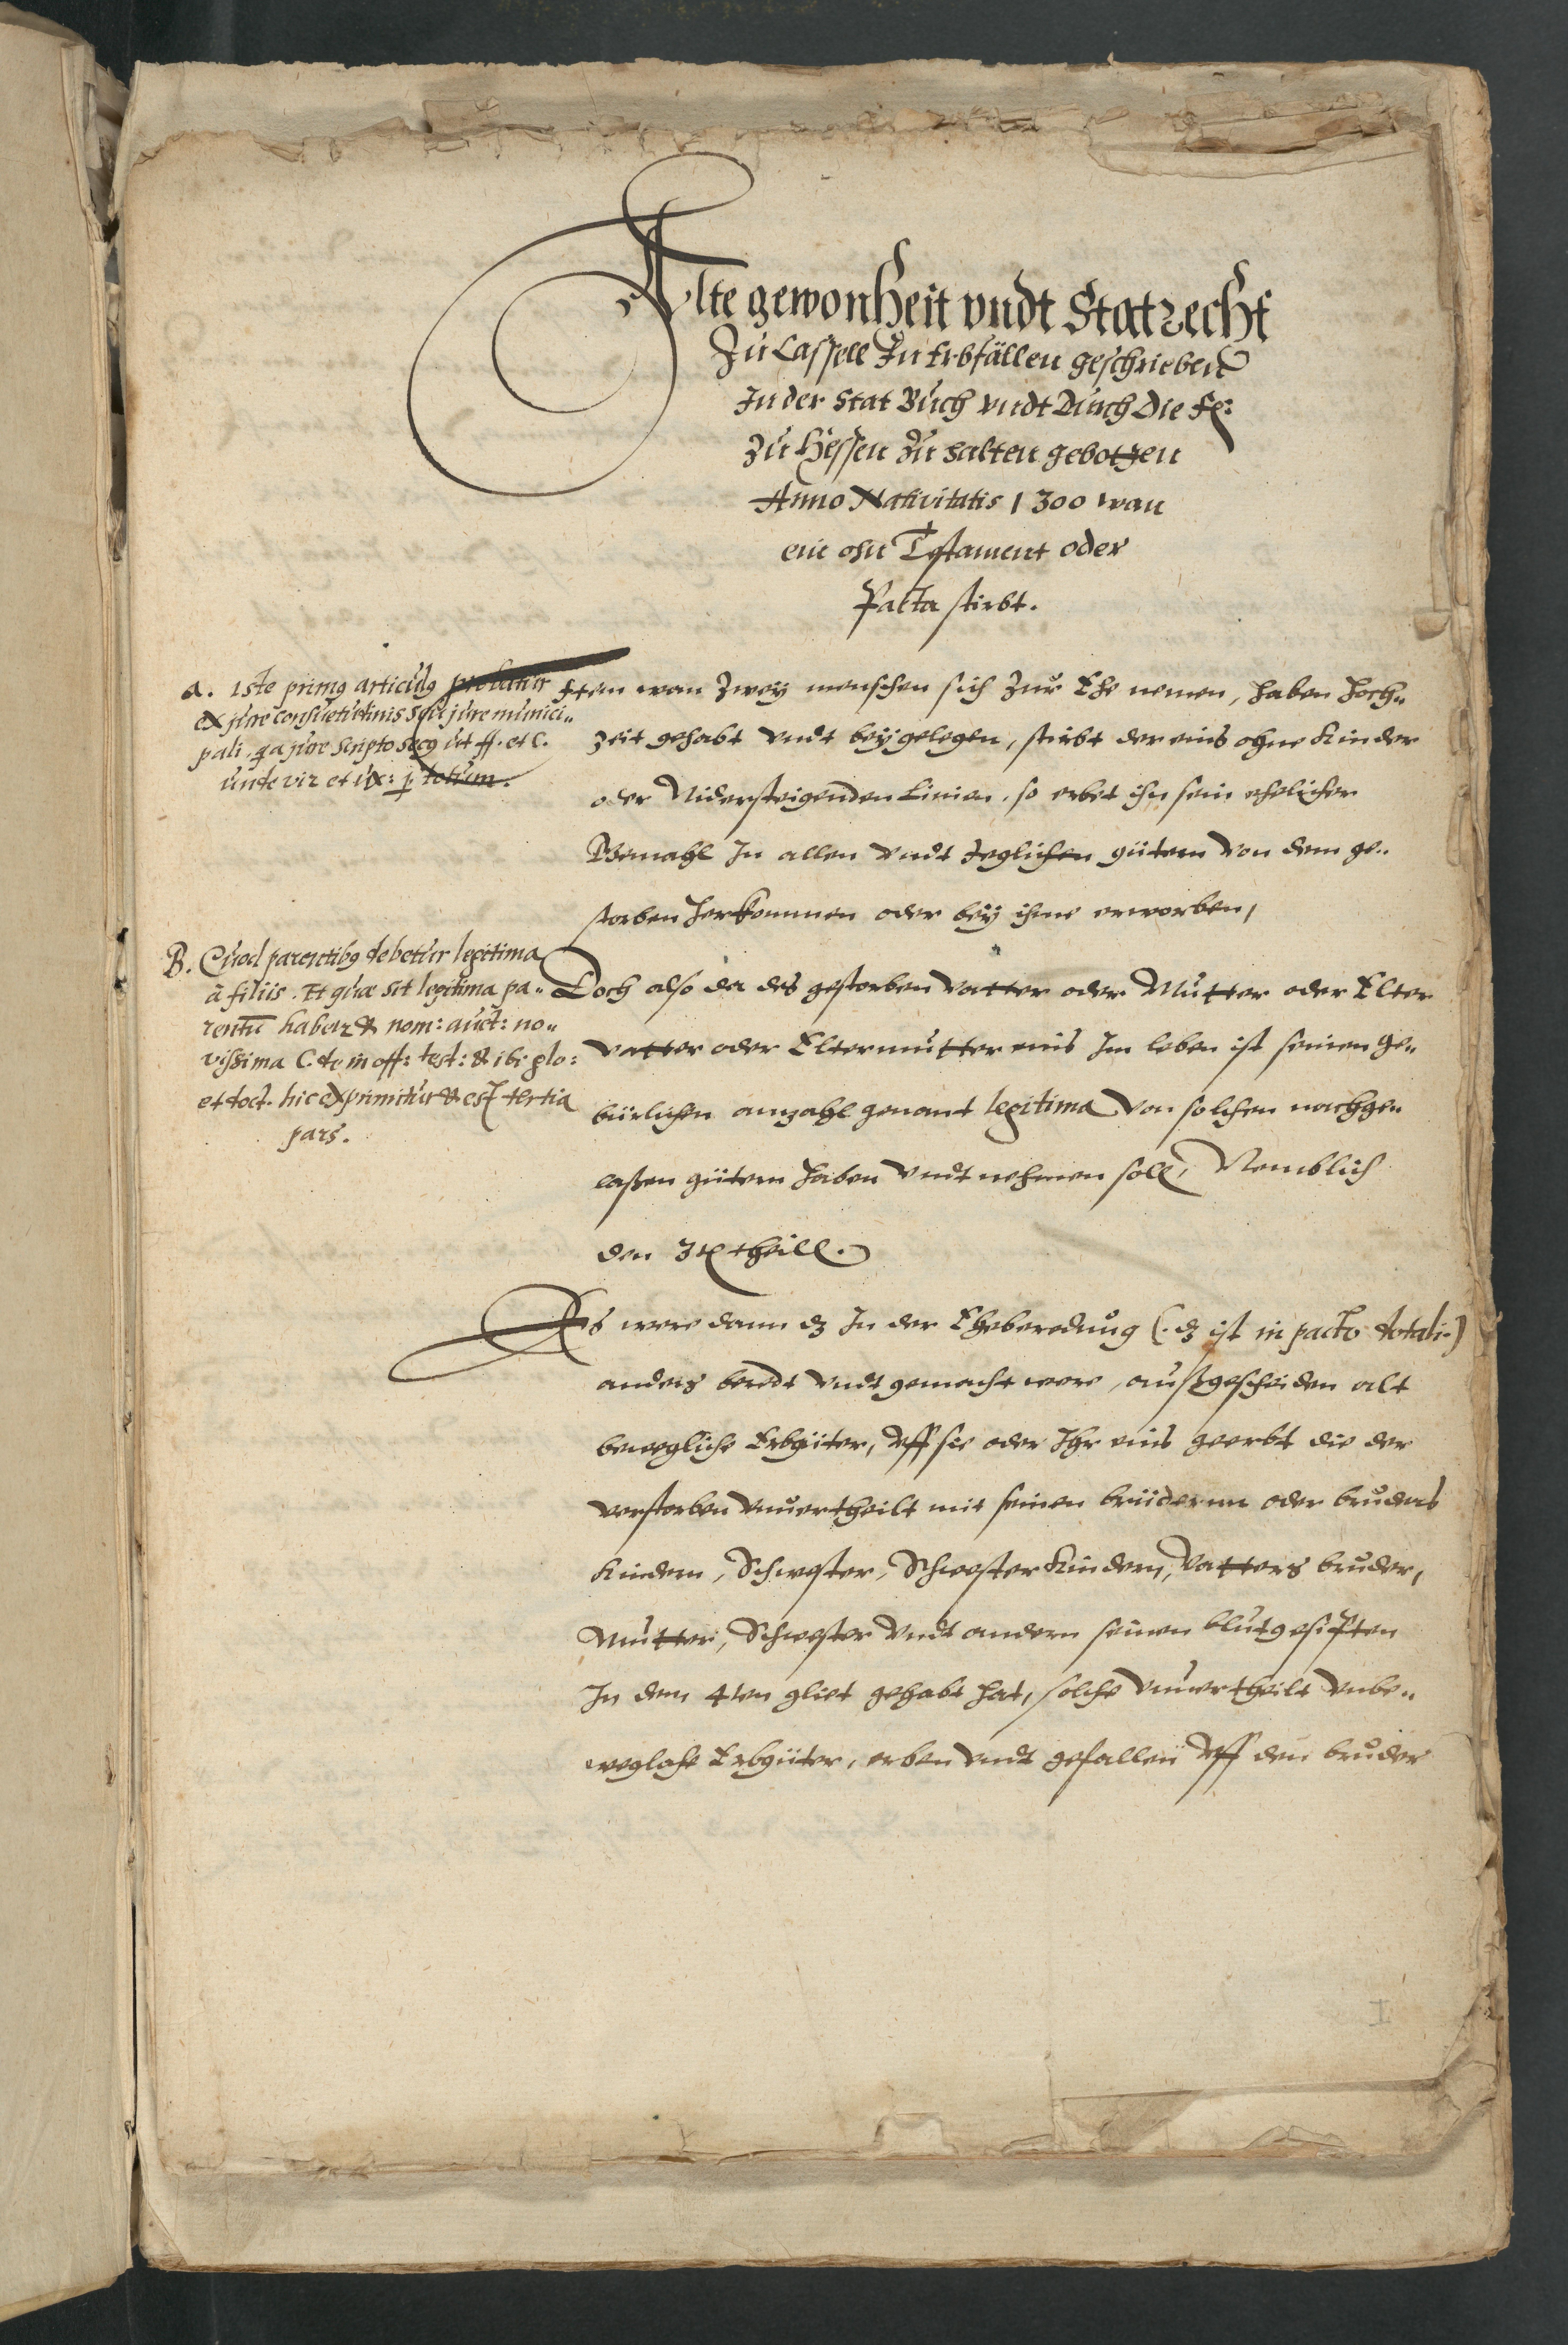 Alte gewonheit vndt Statrecht
Zu Cassell In Erbfällen geschrieben
In der Stat Buch vndt Durch Die F:
zu Hessen zu halten gebotzen
Anno Nativitatis 1300 wan
ein ohn Testament oder
Pacta stirbt.
a. Iste primus articulus probatur
ex jure consuetudinis seu jure munici„
pali, qa jure scripto secus ut ff. et C.
unde vir et ux: p totum.
Item wan Zwey menschen sich Zur Ehe nemen, haben hoch„
zeit gehabt vndt beygelegen, stirbt der eins ohne Kinder
oder Nidersteigenden Linien, so erbet ihn sein ehelicher
Gemahl In allen vndt Jeglichen gütern von dem ge„
storben herkommen oder bey ihme erworben,
B. Quod parentibus debetur legitima
à filiis. Et quae sit legitima pa„
rentū habetur & nom: auct: no„
vissima C. de inoff: test: & ibi glo:
et doct. hic exprimitur & est tertia
pars.
Doch also da des gestorben vatter oder Mutter oder Elter
vatter oder Eltermutter eins Im leben ist seinen ge„
bürlichen anzahl genant legitima von solchen nachge„
laßen gütern haben vndt nehmen soll, Nemblich
den 3t theill.
Es were dann dz In der Eheberedung (. dz ist in pacto dotali.)
anders beredt vndt gemacht were, außgescheiden alt
bewegliche Erbgüter, vff sie oder Ihr eins geerbt die der
verstorben vnuertheilt mit seinen brüdernn oder bruders
Kindern, Schwester, Schwester Kindern, vatters bruder,
Mutter, Schwester vndt andern seinen blutgesipten
In dem 4ten gliet gehabt hat, solche vnuertheilt vnbe„
weglche Erbgüter, erben vndt gefallen vff den bruder
I